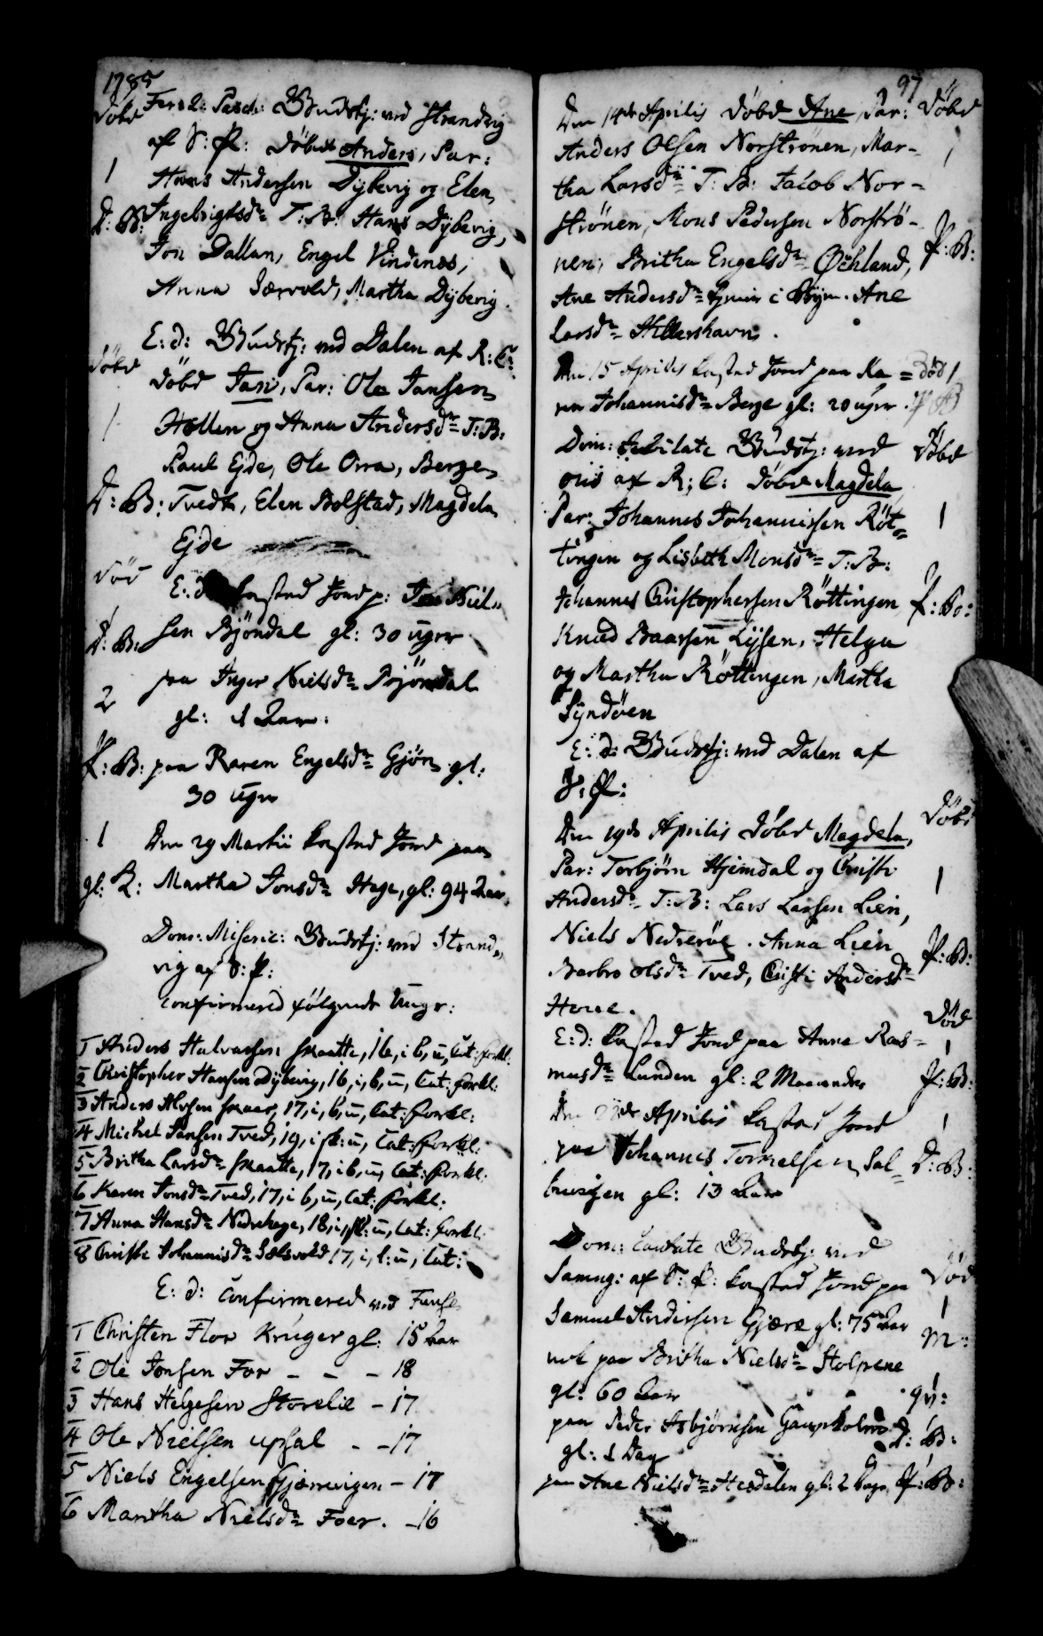 1785
Døbt Feria 2. Pasch: Gudstj: ved Strandvig
af S: P: Døbt Anders, Par:
1 Hans Andersen Dybevig og Elen
D: B: Ingebrigtsdr T: B: Hans Dybevig,
Jon Dallan, Engel Vindenes,
Anna Særvold, Martha Dybevig.
E: d: Gudstj: ved Dalen af R: C:
Døbt Døbt Jan, Par: Ole Jansen
1 Hollen og Anna Andersdr T: B:
Paul Ejde, Ole Orra, Berge
D: B: Tvedt, Elen Bolstad, Magdela
Ejde
Død E: d: kastad Jord p: Niel=
1 sen Bjöndal gl: 30 uger
D: B: paa Inger Nielsdr Bjöndal
2 gl: 1 Aar:
P: B: paa Karen Engelsdr Gjøn gl:
30 uger
1 Den 29 Martii kastad Jord paa
gl: Q: Martha Jonsdr Hage, gl: 94 Aar.
Dom: Miseric: Gudstj: ved Strand=
vig af S: P:
confirmered følgende Unge:
1 Anders Halvorsen Skaatte, 16, i b, u, Cat: forkl:
2 Christopher Hansen Dybevig, 16, i, b, u, Cat: forkl:
3 Anders Skaar, 17, i, b, u, Cat: forkl:
4 Michel Jansen Tved, 19, i sk: u, Cat: forkl:
5 Britha Larsdr Skaatte, 17, i b, u, Cat: forkl:
6 Karen Jonsdr Tved, 17, i b, u, Cat: forkl:
7 Anna Hansdr Nedrehage, 18, i, sk: u, Cat: forkl:
8 Christi Johannisdr 17, i, b: u, Cat:
E: d: Confirmered ved Fuse
1 Christen Flor Krüger gl: 15 Aar
2 Ole Jonsen For - - - 18
3 Hans Helgesen Storelie - 17
4 Ole Nielsen upsal - - 17
5 Niels Engelsen Gjerrevigen - 17
6 Martha Nielsdr Foer. - 16
97
Den 14de Aprilis Døbt Ane, Par: Døbt
Anders Olsen Norstrønen, Mar= 1
tha Larsdr T: B: Jacob Nor=
strønen, Mons Pedersen Norströ=
nen, Britha Engelsdr Øchland, P: B:
Ane Andersdr i Ane
Larsdr Hillershavn.
Den 15 Aprilis kastad Jord paa Ka= død 1
ren Johannisdr Berge gl: 20 uger. P B
Dom: Jubilate Gudstj: ved Døbt
Ous af R: C: Døbt Magdela
Par: Johannes Johannissen Röt= 1
tingen og Lisbeth Monsdr T: B:
Johannes Christophersen Röttingen P: Bo:
Knud Baarsen Lysen, Helga
og Martha Röttingen, Martha
Syndöen
E: d: Gudstj: ved Dalen af
S: P:
Den 19de Aprilis Døbt Magdela, Døbt
Par: Torbjörn Hjemdal og Christi
Andersdr T: B: Lars Larsen Lien, 1
Niels Nedreröe. Anna Lien
Barbro Olsdr Tved, Christi Andersdr P: B:
Hove.
E: d: kastad Jord paa Anna Ras= Død 1
musdr Lunden gl: 2 Maaneder P: B:
Den 22de Aprilis kastad Jord 1
paa Johannis Tormelsen Sal= D: B:
brevigen gl: 13 Aar
Dom: Cantate Gudstj: ved
Samug: af S: P: kastad Jord paa Død
Samuel Andersen Gjære gl: 75 Aar 1
nok paa Britha Nielsdr Stolpene M:
gl: 60 Aar Qv:
paa Peder Asbjørnsen Gaupholm D: B:
gl: 1 Dag 1
paa Ane Nielsdr Hesdalen gl: 2 Dage P: Bo: